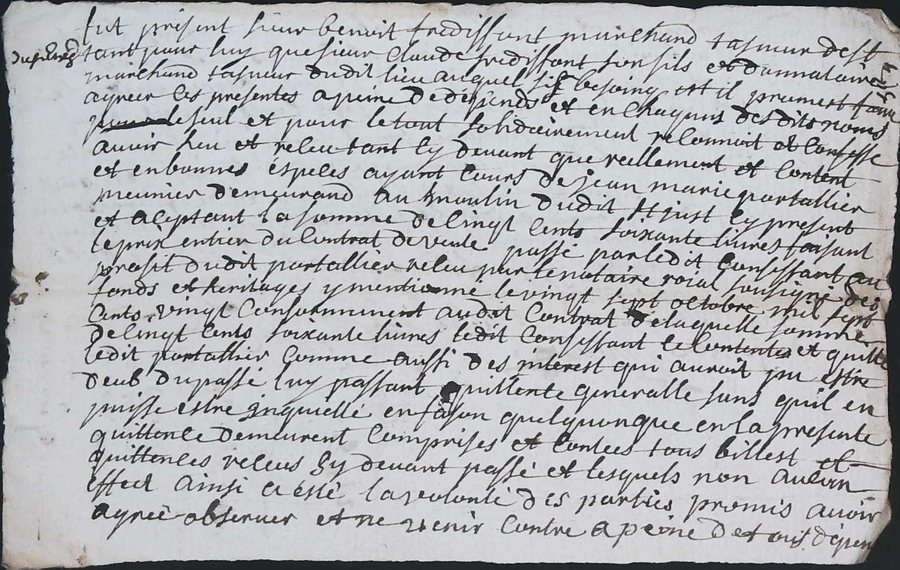 fut présent sieur benoit fredissant marchand tasneur de St
tant pour luy que sieur Claude fredissant son fils et donnataire
marchand tasneur dudit lieu auquel si besoing est il promest faire
agreer les presentes a peine de dépends et en chaquns des dits noms
le seul et pour le tout solidairement reconnoit et Confesse
auoir heu et receu tant Cy deuant que reellement et Content
et en bonnes éspeces ayant Cours de jean marie portallier
meunier demeurand au moulin dudit St just Cy present
et aCeptant la somme de Cinqt Cents soixante liures faisant
le prix entier du Contrat de vente passé par ledit Confissant au
profit dudit portallier receu par le notaire roial sousigné des
fonds et heritages y mentionné le vingt sept octobre mil sept
Cents vingt Conformement audit Contrat de laquelle somme
de Cinqt Cents soixante liures ledit Confissant se Contente et quitte
ledit portallier Comme aussi des interest qui auroit pu estre
deub du passé luy passant quittence generalle sans quil en
puisse estre inquietté en façon quelquonque en la presente
quittence demeurent Comprises et Contees tous billest et
quittences receus Cy deuant passé et lesquels non aucun
effect ainsi a ésté la volonté des parties promis auoir
agreé observer et ne venir Contre a peine de tous dépen